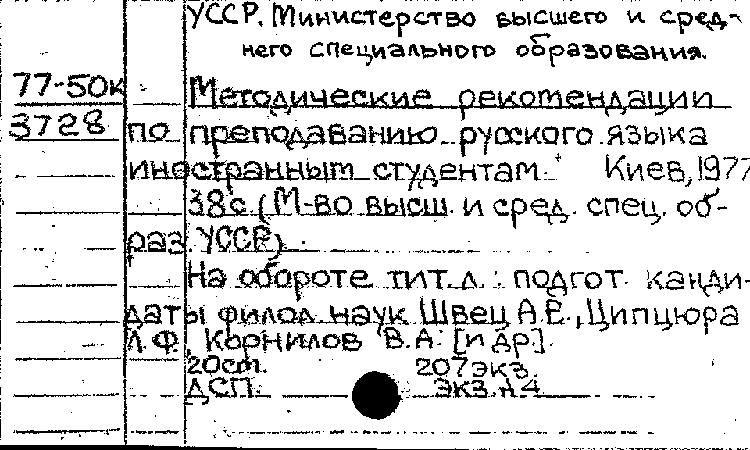 УССР. Министерство высшего и сред-
него специального образования.
77-50к Методические рекомендации
3728 по преподаванию русского языка
иностранным студентам. Киев, 1977
38с (М-во высш. и сред. спец. об-
раз. УССР)
На обороте тит. л.: подгот. канди-
даты филол. наук Швец А.Е., Ципцюра
Л.Ф., Корнилов В.А. [и др].
20см. 207экз.
ДСП. Экз. н.4